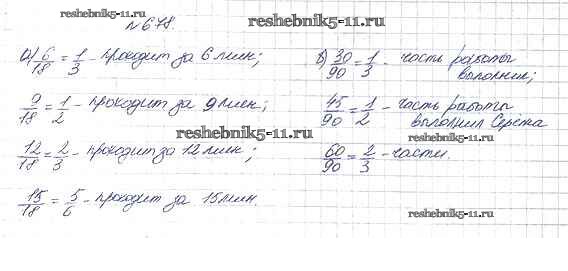 №678.
reshebnik5-11.ru
а) 6/18 = 1/3 - проходит за 6 мин;
9/18 = 1/2 - проходит за 9 мин;
reshebnik5-11.ru
12/18 = 2/3 - проходит за 12 мин;
15/18 = 5/6 - проходит за 15 мин.
в) 30/90 = 1/3 - часть работы
выполнил;
45/90 = 1/2 - часть работы
выполнил Сережа
60/90 = 2/3 - части.
reshebnik5-11.ru
reshebnik5-11.ru